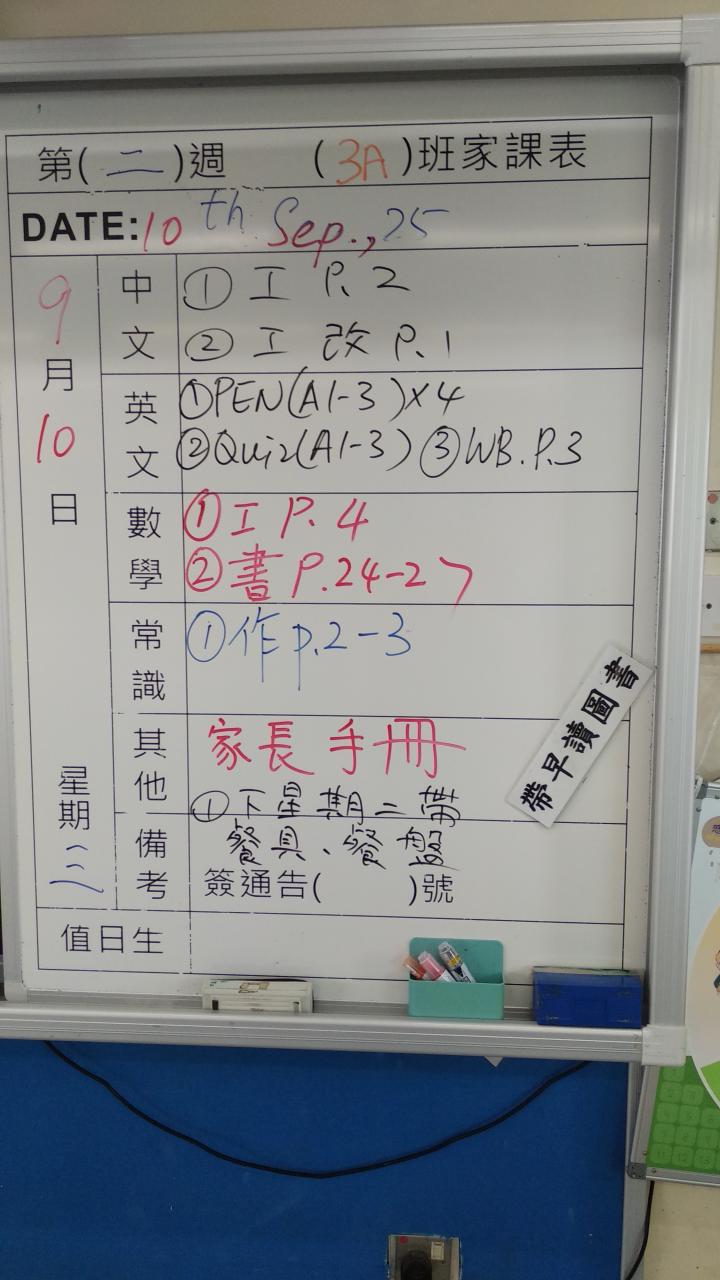 第(二)週 (3A)班家課表
DATE:10th Sep.,25
9月10日 星期三
中文 ①工 P.2
②工 改 P.1
英文 ①PEN(A1-3)×4
②Quiz(A1-3) ③WB.P.3
數學 ①工 P.4
②書 P.24-27
常識 ①作 p.2-3
其他 家長手冊
①下星期二帶
備考 餐具、餐盤
簽通告( )號
值日生
帶早讀圖書